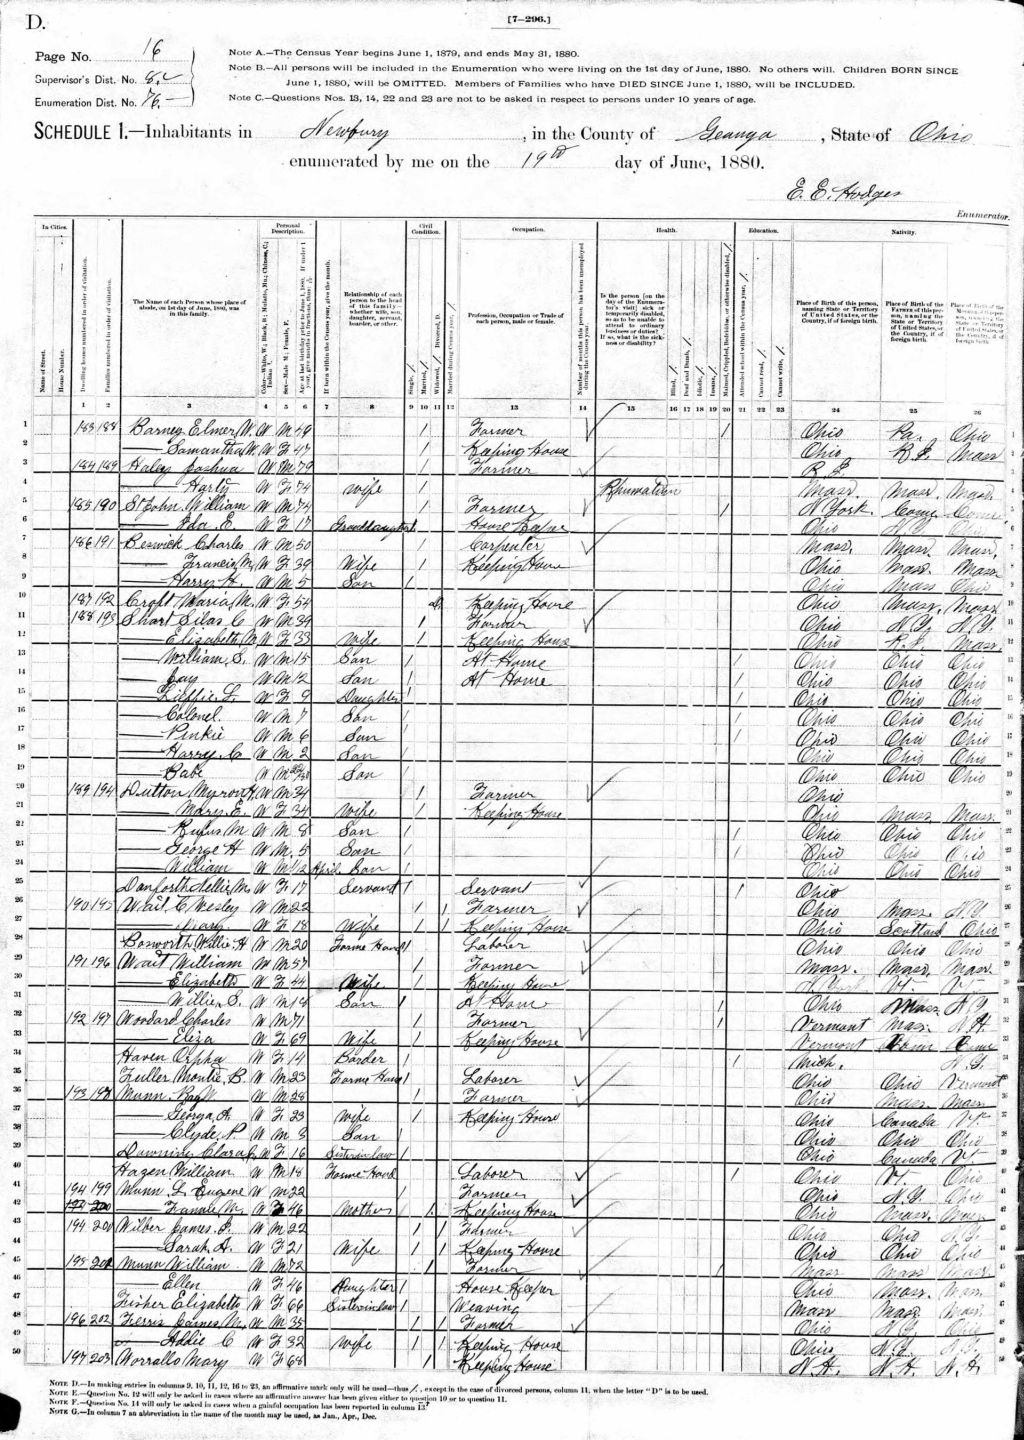 D.
[7-296.]
Page No. 16
Supervisor's Dist. No. 8
Enumeration Dist. No. 76
Note A.—The Census Year begins June 1, 1879, and ends May 31, 1880.
Note B.—All persons will be included in the Enumeration who were living on the 1st day of June, 1880. No others will. Children BORN SINCE
June 1, 1880, will be OMITTED. Members of Families who have DIED SINCE June 1, 1880, will be INCLUDED.
Note C.—Questions Nos. 13, 14, 22 and 23 are not to be asked in respect to persons under 10 years of age.
SCHEDULE 1.—Inhabitants in Newbury, in the County of Geauga, State of Ohio
enumerated by me on the 19th day of June, 1880.
E. E. Hodges
Enumerator.
In Cities. Personal Description. Civil Condition. Occupation. Health. Education. Nativity.
Name of Street. House Number. Dwelling houses numbered in order of visitation. Families numbered in order of visitation.
The Name of each Person whose place of abode, on 1st day of June, 1880, was in this family.
Relationship of each person to the head of this family—whether wife, son, daughter, servant, boarder, or other.
Profession, Occupation or Trade of each person, male or female.
Place of Birth of this person, naming State or Territory of United States, or the Country, if of foreign birth.
Place of Birth of the FATHER of this person, naming the State or Territory of United States, or the Country, if of foreign birth.
1 2 3 4 5 6 7 8 9 10 11 12 13 14 15 16 17 18 19 20 21 22 23 24 25 26
1 183 188 Barney Elmer W. W M 49 / Farmer / Ohio Pa. Ohio
2 — Samantha W. W F 47 / Keeping House Ohio R.I. Mass
3 184 189 Haley Joshua W M 79 / Farmer R.I.
4 — Harty W F 74 wife / Rhumatism Mass. Mass. Mass.
5 185 190 St John William W M 74 / Farmer / N York Conn Conn
6 — Ida E. W F 17 Granddaughter / Ohio N.Y. Ohio
7 186 191 Beswick Charles W M 50 / Carpenter Mass. Mass. Mass.
8 — Francis M. W F 39 Wife / Keeping House Ohio Mass. Mass
9 — Harry H. W M 5 Son / Ohio Mass Ohio
10 187 192 Croft Maria M. W F 54 Keeping House Ohio Mass. Mass
11 188 193 Short Silas C W M 39 / Farmer Ohio N.Y. N.Y.
12 — Elizabeth M. W F 33 wife / Keeping House Ohio R.I. Mass
13 — William S. W M 15 Son / At Home / Ohio Ohio Ohio
14 — Jay W M 12 Son / At Home / Ohio Ohio Ohio
15 — L. W F 9 Daughter / / Ohio Ohio Ohio
16 — Colonel W M 7 Son / / Ohio Ohio Ohio
17 — Pinkie W M 6 Son / / Ohio Ohio Ohio
18 — Harry C W M 2 Son / Ohio Ohio Ohio
19 — Babe W M Son / Ohio Ohio Ohio
20 189 194 Dutton Myron H. W M 34 / Farmer Ohio
21 — Mary E. W F 34 wife / Keeping House Ohio Mass. Mass.
22 — Rufus M W M 8 Son / / Ohio Ohio Ohio
23 — George H W M 5 Son / / Ohio Ohio Ohio
24 — William W M 1/12 April Son / Ohio Ohio Ohio
25 Danforth Nellie M. W F 17 Servant / Servant / Ohio
26 190 195 Wait C Wesley W M 22 / / Farmer Ohio Mass. N.Y.
27 — Mary W F 18 Wife / / Keeping House Ohio Scotland Ohio
28 Bosworth Willie H W M 20 Farme Hand / Laborer Ohio Ohio Ohio
29 191 196 Wait William W M 57 / Farmer Mass. Mass. Mass.
30 — Elizabeth W F 44 Wife / Keeping House Vt. Vt.
31 — Willie S. W M 18 Son / At Home / Ohio Mass N.Y.
32 192 197 Woodard Charles W M 71 / Farmer / Vermont Mass. N.H.
33 — Eliza W F 69 Wife / Keeping House Vermont Conn Conn
34 Haven Orpha W F 14 Border / / Mich. N.Y.
35 Fuller Montie B. W M 23 Farme Hand / Laborer Ohio Ohio Vermont
36 193 198 Munn W. W M 28 / Farmer Ohio Mass. Mass.
37 — Georga A. W F 23 wife / Keeping House Ohio Canada Vt.
38 — Clyde P. W M 3 Son / Ohio Ohio Ohio
39 Downing Clara W F 16 Sister in law / Ohio Canada Vt
40 Hazen William W M 18 Farme Hand / Laborer / Ohio Vt. Ohio
41 194 199 Munn L. Eugene W M 22 Farmer Ohio N.Y. Ohio
42 — Fannie M. W F 46 Mother Keeping House Ohio Mass. Mass.
43 194 200 Wilber James W M 22 / / Farmer Ohio Ohio N.Y.
44 — Sarah A. W F 21 Wife / / Keeping House Ohio Ohio Ohio
45 195 201 Munn William W M 72 / Farmer / Mass Mass Mass
46 — Ellen W F 46 Daughter / House Keeper Ohio Mass. Mass.
47 Fisher Elizabeth W F 66 Sister in law / Weaving Mass Mass Mass
48 196 202 Ferris James M. W M 35 / / Farmer Ohio N.Y. Ohio
49 — Addie C W F 32 wife / / Keeping House Ohio N.Y. N.Y.
50 197 203 Worrallo Mary W F 68 / Keeping House N.H. N.H. N.H.
NOTE D.—In making entries in columns 9, 10, 11, 12, 16 to 23, an affirmative mark only will be used—thus /, except in the case of divorced persons, column 11, when the letter "D" is to be used.
NOTE E.—Question No. 12 will only be asked in cases where an affirmative answer has been given either to question 10 or to question 11.
NOTE F.—Question No. 14 will only be asked in cases when a gainful occupation has been reported in column 13.
NOTE G.—In column 7 an abbreviation in the name of the month may be used, as Jan., Apr., Dec.